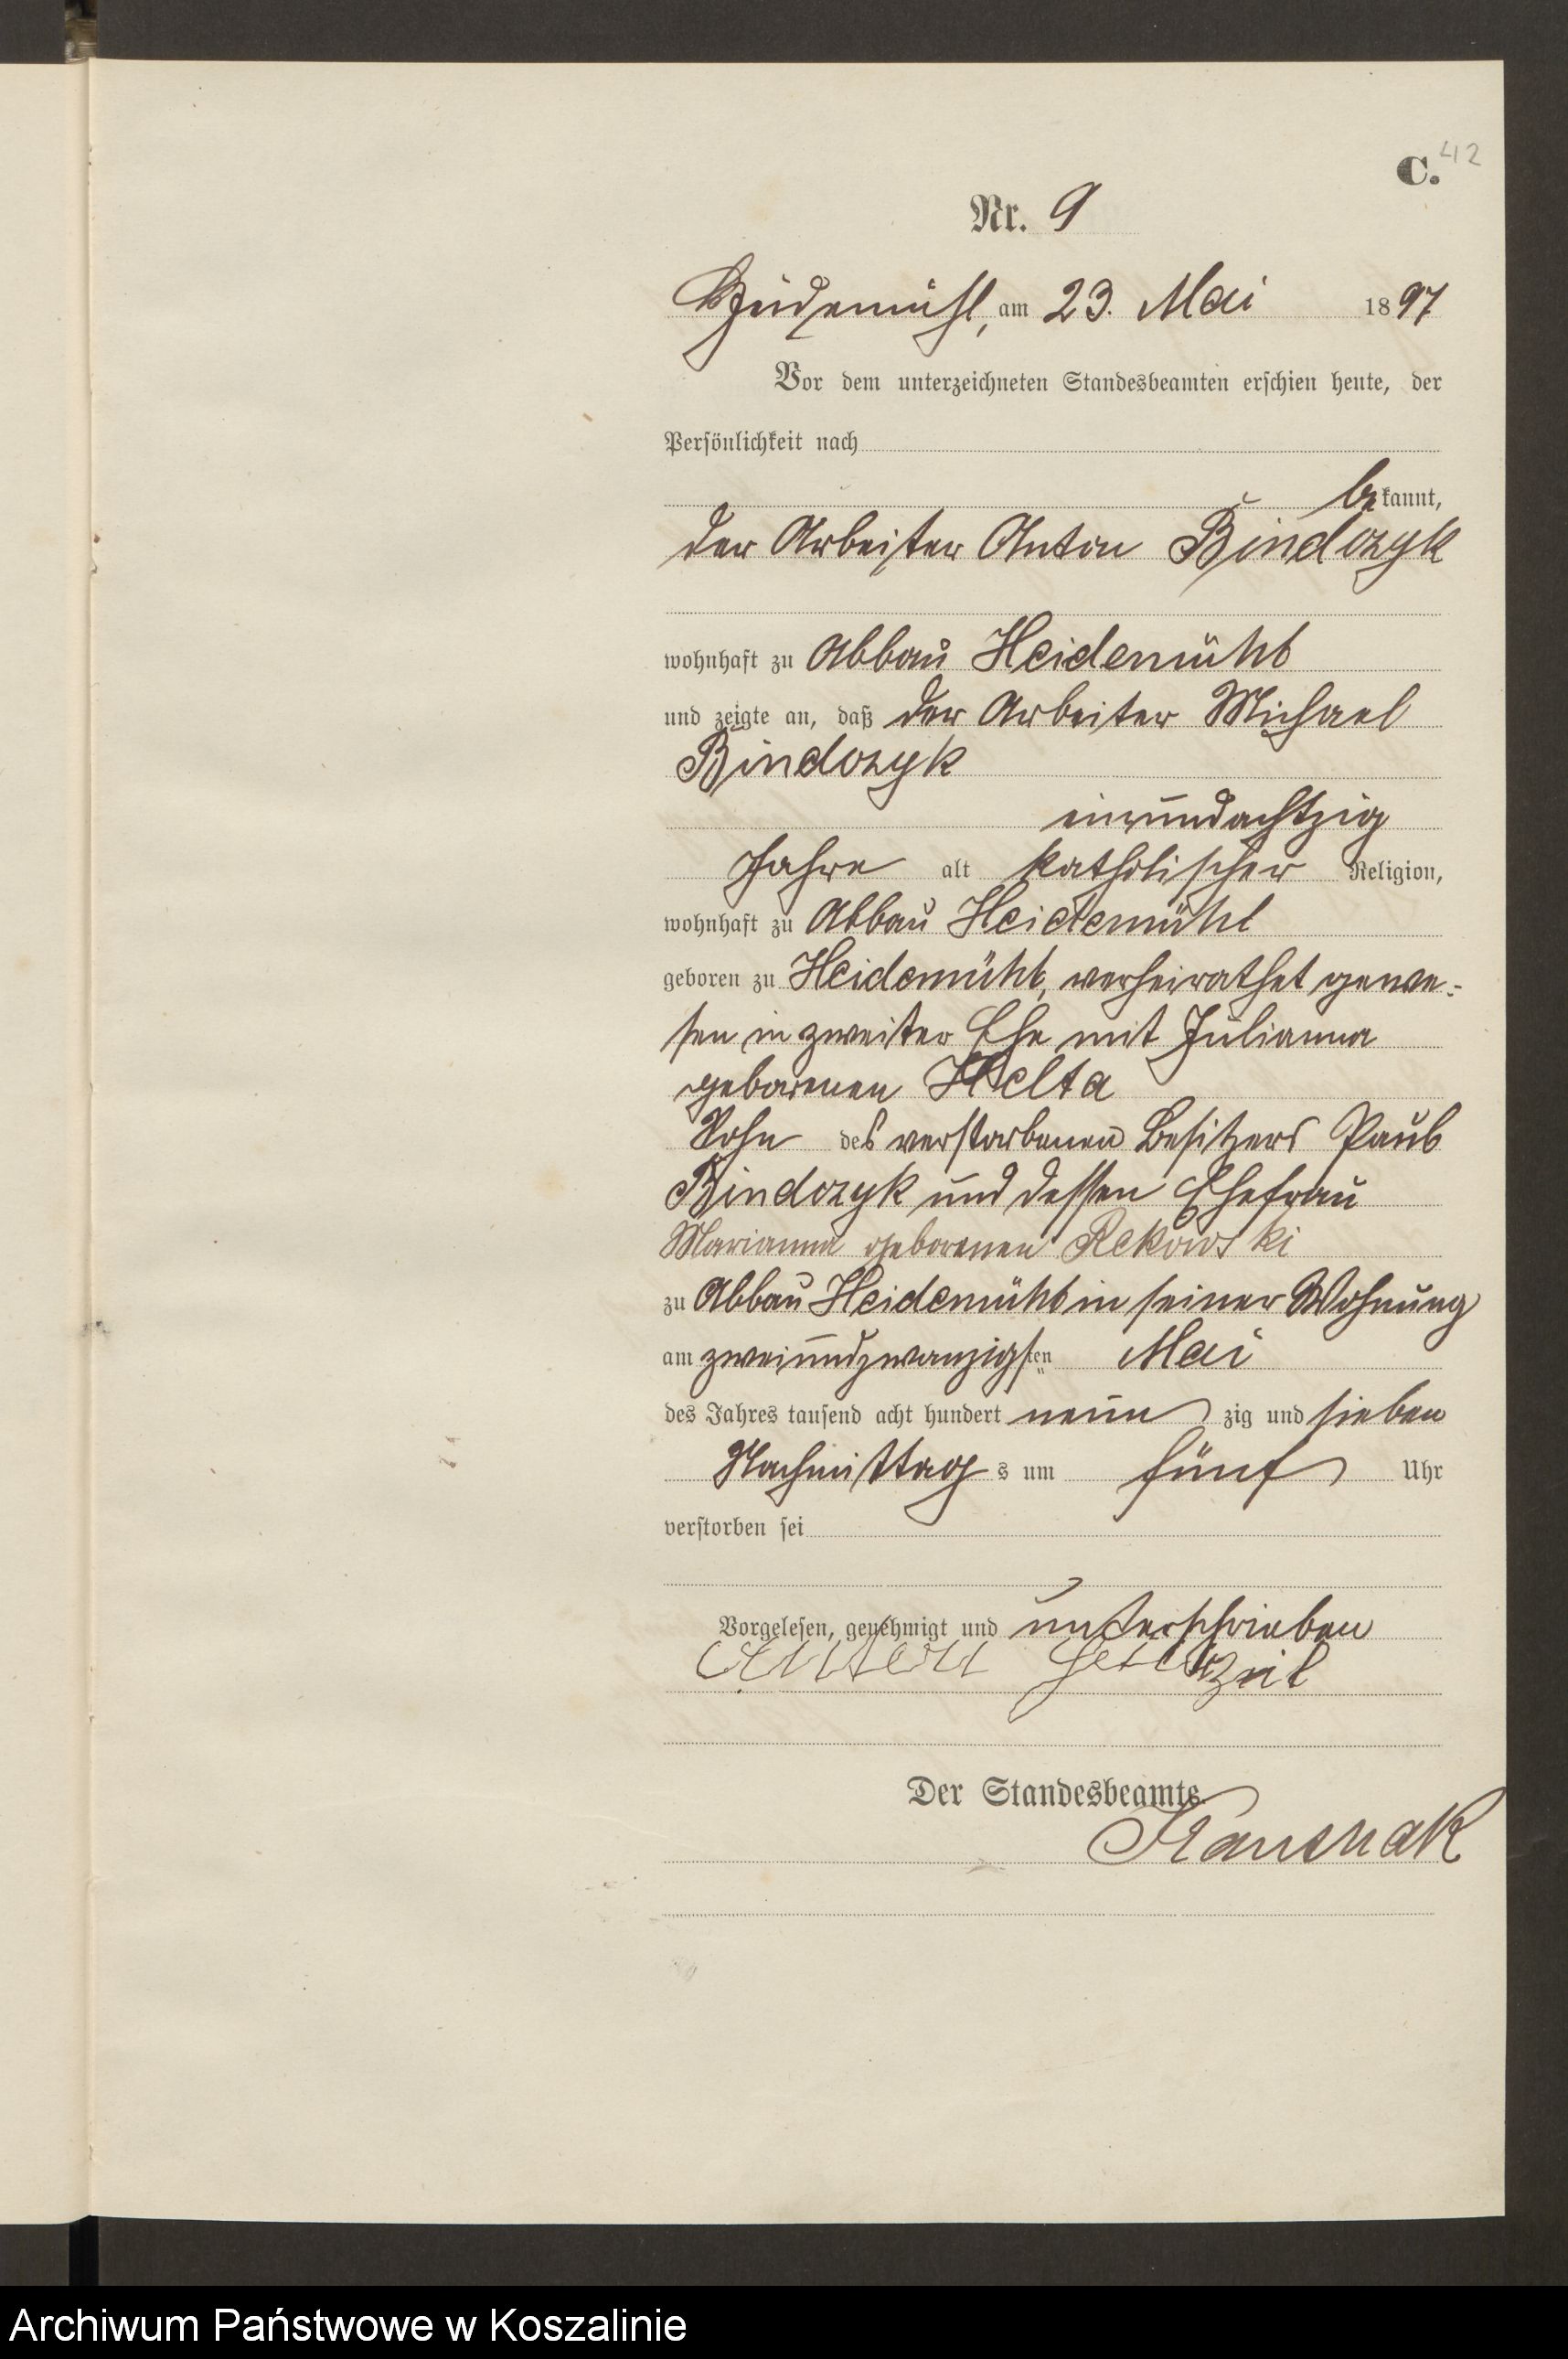 C. 42
Nr. 9
am 23. Mai 1897
Vor dem unterzeichneten Standesbeamten erschien heute, der
Persönlichkeit nach
bekannt,
der Arbeiter Anton Bindczyk
wohnhaft zu Abbau Heidemühl
und zeigte an, daß der Arbeiter Michael
Bindczyk
einundachtzig
Jahre alt katholischer Religion,
wohnhaft zu Abbau Heidemühl
geboren zu Heidemühl, verheirathet gewe-
sen in zweiter Ehe mit Julianna
geborenen Helta
Sohn des verstorbenen Besitzers Paul
Bindczyk und dessen Ehefrau
Marianna geborenen Rekowski
zu Abbau Heidemühl in seiner Wohnung
am zweiundzwanzigsten Mai
des Jahres tausend acht hundert neunzig und sieben
Nachmittags um fünf Uhr
verstorben sei
Vorgelesen, genehmigt und unterschrieben
Anton
Der Standesbeamte.
Archiwum Państwowe w Koszalinie